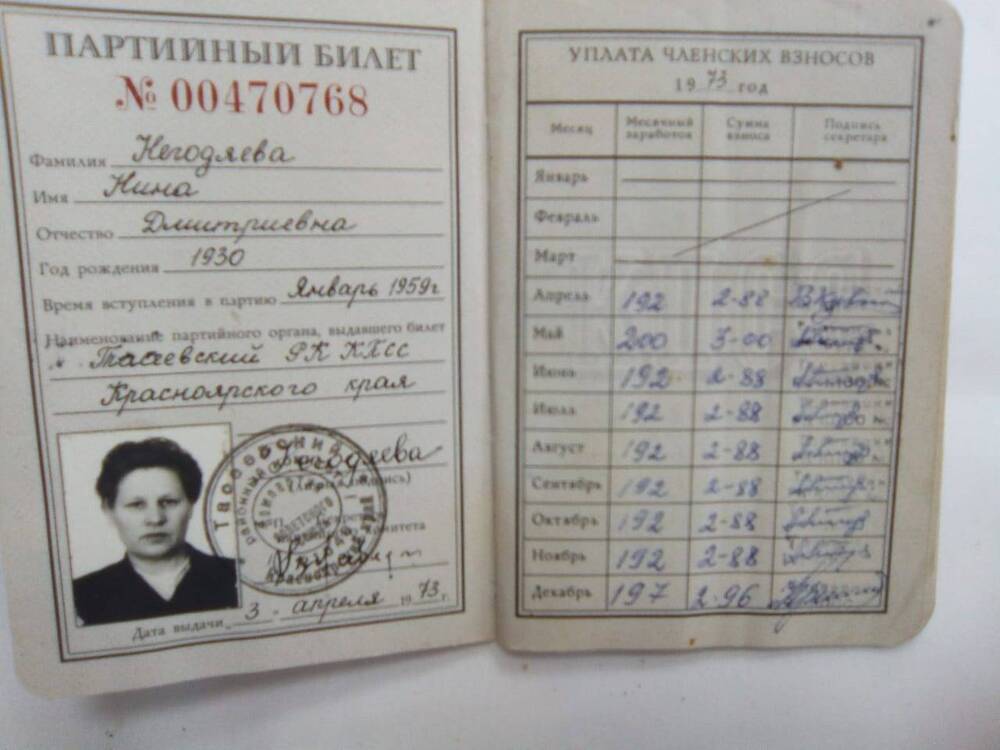 ПАРТИЙНЫЙ БИЛЕТ
№ 00470768
Фамилия Негодяева
Имя Нина
Отчество Дмитриевна
Год рождения 1930
Время вступления в партию Январь 1959г
Наименование партийного органа, выдавшего билет
Тасеевский РК КПСС
Красноярского края
Негодяева
Дата выдачи 3 апреля 1973 г.
УПЛАТА ЧЛЕНСКИХ ВЗНОСОВ
1973 год
Месяц Месячный заработок Сумма взноса Подпись секретаря
Январь
Февраль
Март
Апрель 192 2-88
Май 200 3-00
Июнь 192 2-88
Июль 192 2-88
Август 192 2-88
Сентябрь 192 2-88
Октябрь 192 2-88
Ноябрь 192 2-88
Декабрь 197 2-96